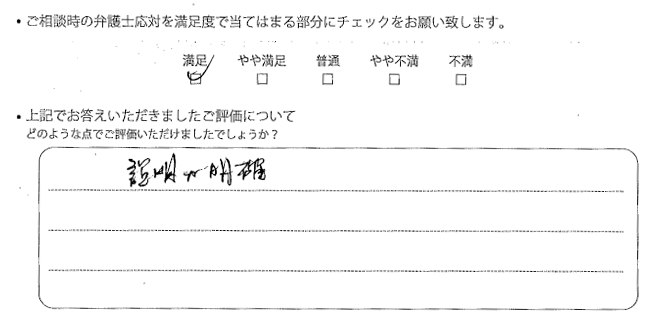 ・ご相談時の弁護士応対を満足度で当てはまる部分にチェックをお願い致します。
満足 やや満足 普通 やや不満 不満
・上記でお答えいただきましたご評価について
どのような点でご評価いただけましたでしょうか？
説明が明確